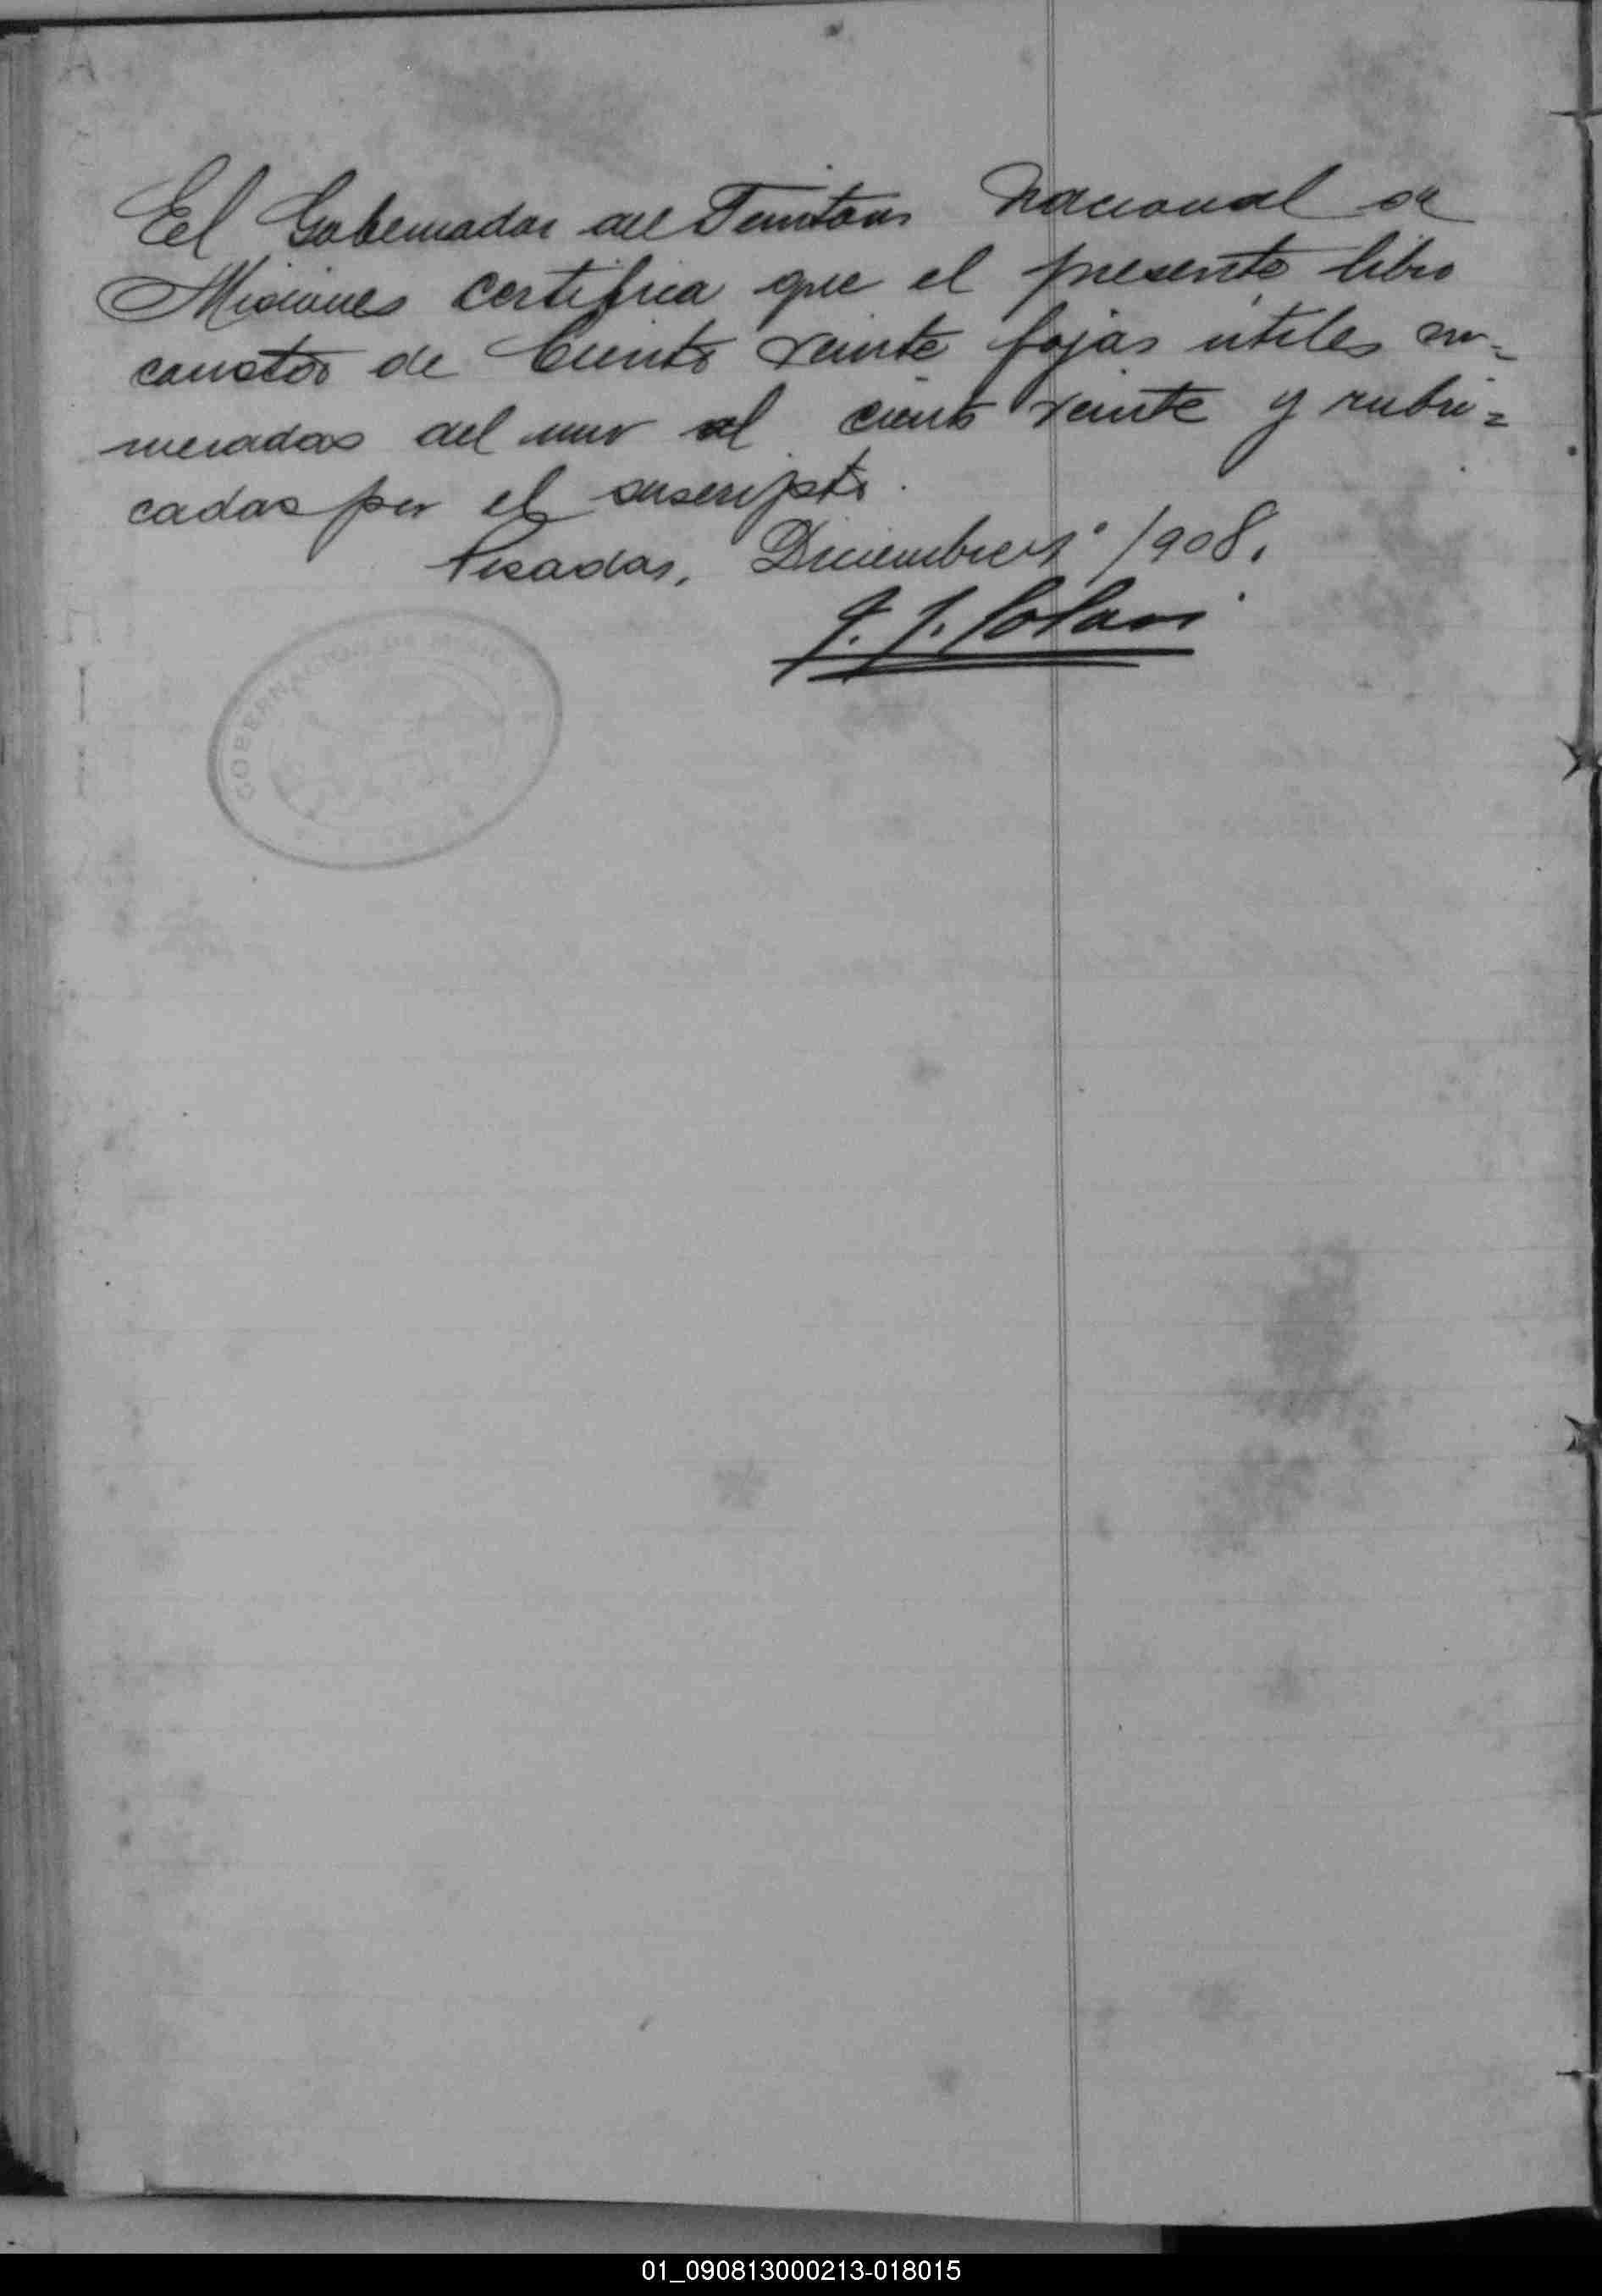 El Gobernador del Territorio Nacional de
Misiones certifica que el presente libro
consta de Ciento veinte fojas útiles nu=
meradas del uno al ciento veinte y rubri=
cadas por el suscripto.
Posadas, Diciembre 1º 1908.
J. J. Lolani
GOBERNACION DE MISIONES
01_090813000213-018015